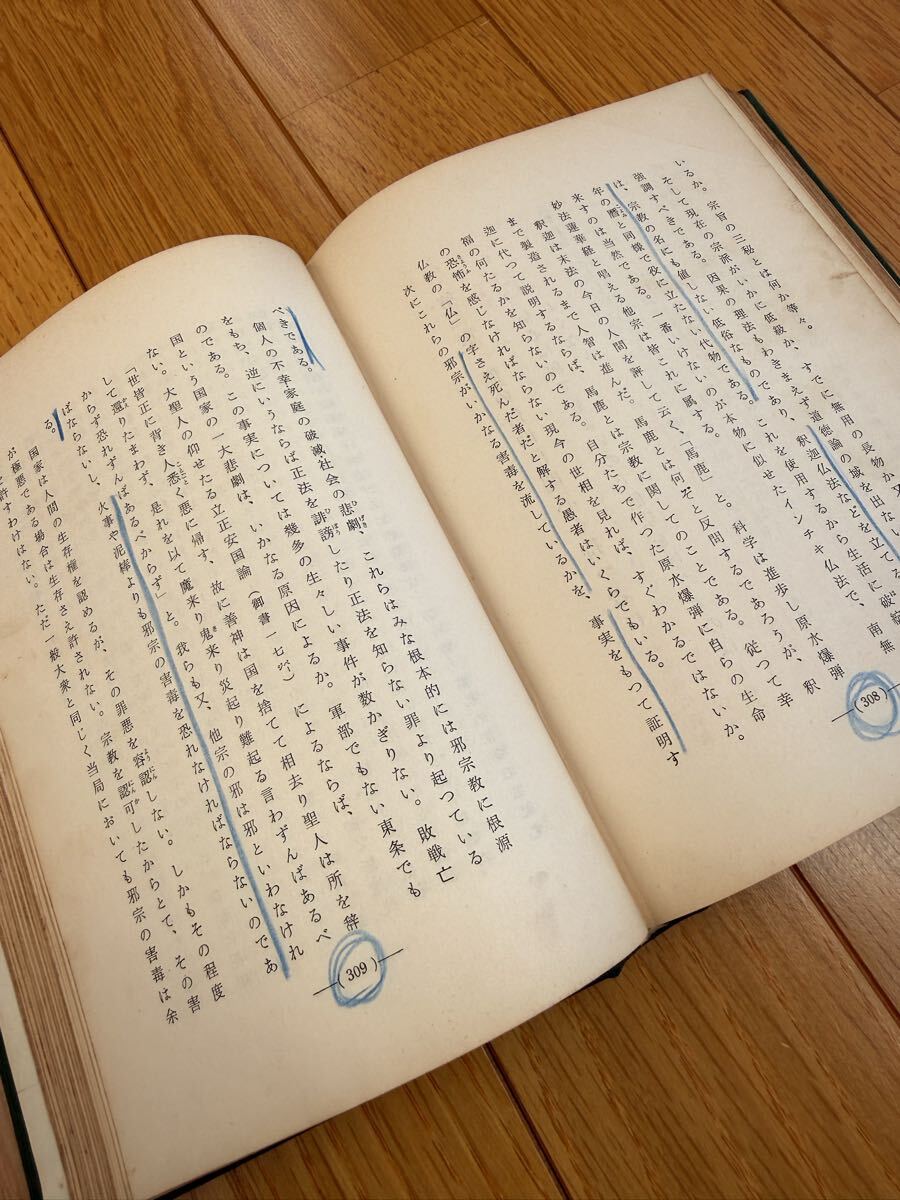 いるか。宗旨の三秘とは何か等々。すでに無用の長物か、又
そして現在の宗派がいかに低級か、
強調すべきである。因果の理法もわきまえず道徳論の域を出ない
は、宗教の名にも値しない低俗なものであり、釈迦仏法などを立てる
年の暦と同様で役に立たない代物である。これを使用するから生活に破
来すのは当然である。一番いけないのが本物に似せたインチキ仏法で、南無
妙法蓮華経と唱える他宗は皆これに属する。
釈迦は末法の今日の人間を評して云く、「馬鹿」と。科学は進歩し原水爆弾
まで製造されるまで人智は進んだ。馬鹿とは何ぞと反問するであろうが、釈
迦に代って説明するならば、馬鹿とは宗教に関してのことである。従って幸
福の何たるかを知らないのである。自分たちで作った原水爆弾に自らの生命
の恐怖を感じなければならない現今の世相を見れば、すぐわかるではないか。
仏教の「仏」の字さえ死んだ者だと解する愚者はいくらでもいる。
次にこれらの邪宗がいかなる害毒を流しているかを、事実をもって証明す
(308)
べきである。
個人の不幸家庭の破滅社会の悲劇、これらはみな根本的には邪宗教に根源
をもち、逆にいうならば正法を誹謗したり正法を知らない罪より起つている
のである。この事実については幾多の生々しい事件が数かぎりない。敗戦亡
国という国家の一大悲劇は、いかなる原因によるか。軍部でもない東条でも
ない。大聖人の仰せたる立正安国論(御書一七㌻)によるならば、
「世皆正に背き人悉く悪に帰す、故に善神は国を捨てて相去り聖人は所を辞
して還りたまわず、是れを以て魔来り鬼来り災起り難起る言わずんばあるべ
からず恐れずんばあるべからず」と。我らも又、他宗の邪は邪といわなけれ
ばならないし、火事や泥棒よりも邪宗の害毒を恐れなければならないのであ
る。
国家は人間の生存権を認めるが、その罪悪を容認しない。しかもその程度
が極悪である場合は生存さえ許されない。宗教を認可したからとて、その害
を許すわけはない。ただ一般大衆と同じく当局においても邪宗の害毒は余
(309)